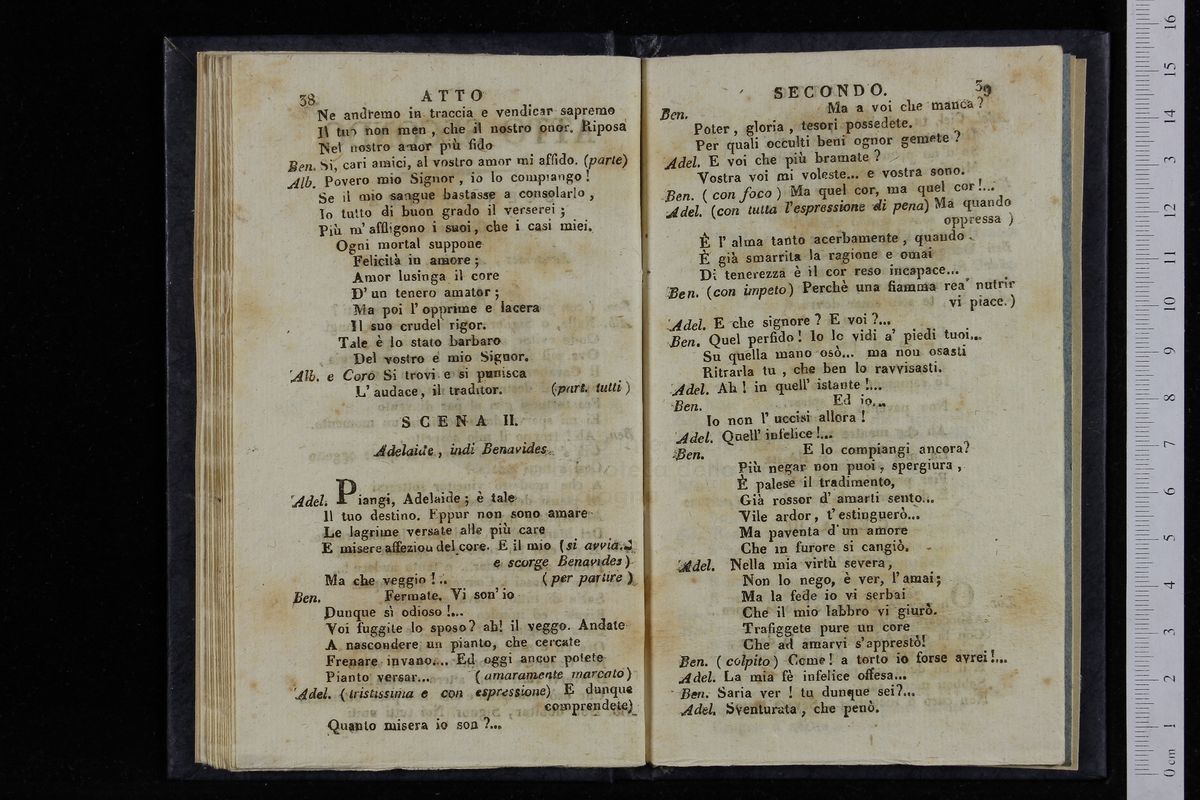 38 ATTO
Ne andremo in traccia e vendicar sapremo
Il tuo non men, che il nostro onor. Riposa
Nel nostro amor più fido
Ben. Si, cari amici, al vostro amor mi affido. (parte)
Alb. Povero mio Signor, io lo compiango!
Se il mio sangue bastasse a consolarlo,
Io tutto di buon grado il verserei;
Più m'affligono i suoi, che i casi miei.
Ogni mortal suppone
Felicità in amore;
Amor lusinga il core
D'un tenero amator;
Ma poi l'opprime e lacera
Il suo crudel rigor.
Tale è lo stato barbaro
Del vostro e mio Signor.
Alb. e Coro Si trovi e si punisca
L'audace, il traditor. (part. tutti)
SCENA II.
Adelaide, indi Benavides.
Adel. Piangi, Adelaide; è tale
Il tuo destino. Eppur non sono amare
Le lagrime versate alle più care
E misere affezion del core. E il mio (si avvia..
e scorge Benavides)
Ma che veggio!.. (per partire)
Ben. Fermate. Vi son' io
Dunque sì odioso!...
Voi fuggite lo sposo? ah! il veggo. Andate
A nascondere un pianto, che cercate
Frenare invano.... Ed oggi ancor potete
Pianto versar... (amaramente marcato)
Adel. (tristissima e con espressione) E dunque
comprendete)
Quanto misera io son?...
SECONDO. 39
Ben. Ma a voi che manca?
Poter, gloria, tesori possedete.
Per quali occulti beni ognor gemete?
Adel. E voi che più bramate?
Vostra voi mi voleste... e vostra sono.
Ben. (con foco) Ma quel cor, ma quel cor!...
Adel. (con tutta l'espressione di pena) Ma quando
oppressa)
È l'alma tanto acerbamente, quando
È già smarrita la ragione e omai
Di tenerezza è il cor reso incapace...
Ben. (con impeto) Perchè una fiamma rea nutrir
vi piace.)
Adel. E che signore? E voi?...
Ben. Quel perfido! Io lo vidi a' piedi tuoi...
Su quella mano osò... ma non osasti
Ritrarla tu, che ben lo ravvisasti.
Adel. Ah! in quell' istante!...
Ben. Ed io...
Io non l'uccisi allora!
Adel. Quell' infelice!...
Ben. E lo compiangi ancora?
Più negar non puoi, spergiura,
È palese il tradimento,
Già rossor d'amarti sento...
Vile ardor, t'estinguerò...
Ma paventa d'un amore
Che in furore si cangiò.
Adel. Nella mia virtù severa,
Non lo nego, è ver, l'amai;
Ma la fede io vi serbai
Che il mio labbro vi giurò.
Trafiggete pure un core
Che ad amarvi s'apprestò!
Ben. (colpito) Come! a torto io forse avrei!...
Adel. La mia fè infelice offesa...
Ben. Saria ver! tu dunque sei?...
Adel. Sventurata, che penò.
0 cm 1 2 3 4 5 6 7 8 9 10 11 12 13 14 15 16